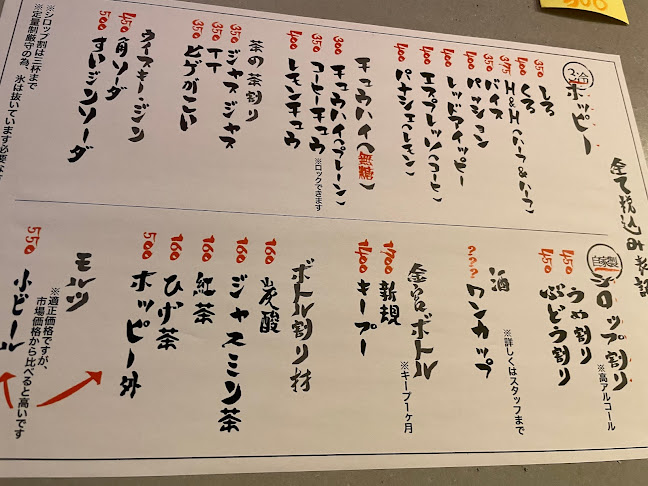 全て税込み表記
冷
ホッピー
350 しろ
400 くろ
375 H&H(ハーフ&ハーフ)
350 バイス
400 パッション
400 レッドアイッピー
400 エスプレッソ(コーヒー)
400 パナシェ(レモン)
チュウハイ(無糖)
300 チュウハイ(プレーン)
350 コーヒーチュウ ※ロックできます
400 レモンチュウ
茶の茶割り
350 ジャスジャス
350 TT
350 ヒゲがこい
ウイスキー・ジン
450 角ソーダ
500 すいジンソーダ
※シロップ割は三杯まで
※定量制厳守の為、氷は抜いています必要な
自家製 シロップ割り ※高アルコール
450 うめ割り
450 ぶどう割り
酒 ※詳しくはスタッフまで
??? ワンカップ
金宮ボトル ※キープ1ヶ月
1700 新規
1400 キープ
ボトル割り材
160 炭酸
160 ジャスミン茶
160 紅茶
160 ひげ茶
500 ホッピー外
モルツ
※適正価格ですが、
市場価格から比べると高いです
550 小ビール